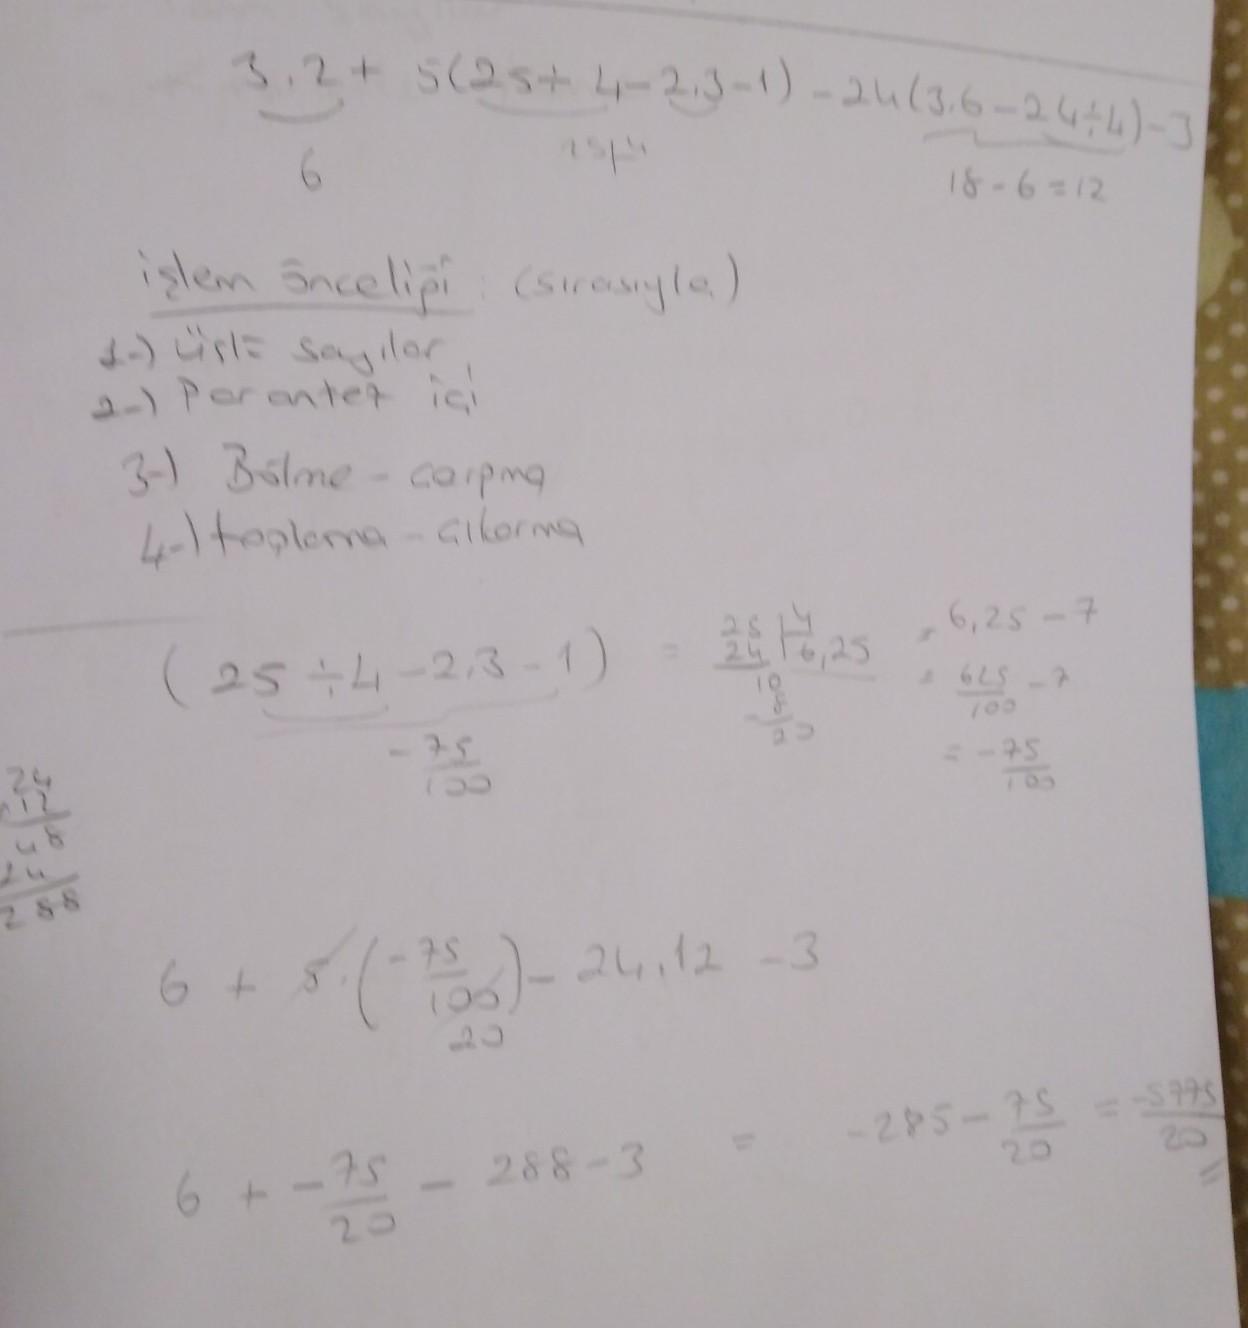 3.2 + 5(25÷4-2.3-1) - 24(3.6-24÷4)-3
6
18-6=12
işlem önceliği : (sırasıyla)
1-) üslü sayılar
2-) Parantez içi
3-) Bölme - çarpma
4-) toplama - çıkarma
(25÷4-2.3-1) = 25 | 4 = 6,25-7
24 6,25
10
8
20
= 625/100 - 7
= -75/100
-75/100
24
.12
48
24
288
6 + 5.(-75/100) - 24.12 - 3
20
6 + -75/20 - 288-3 = -285 - 75/20 = -5775/20